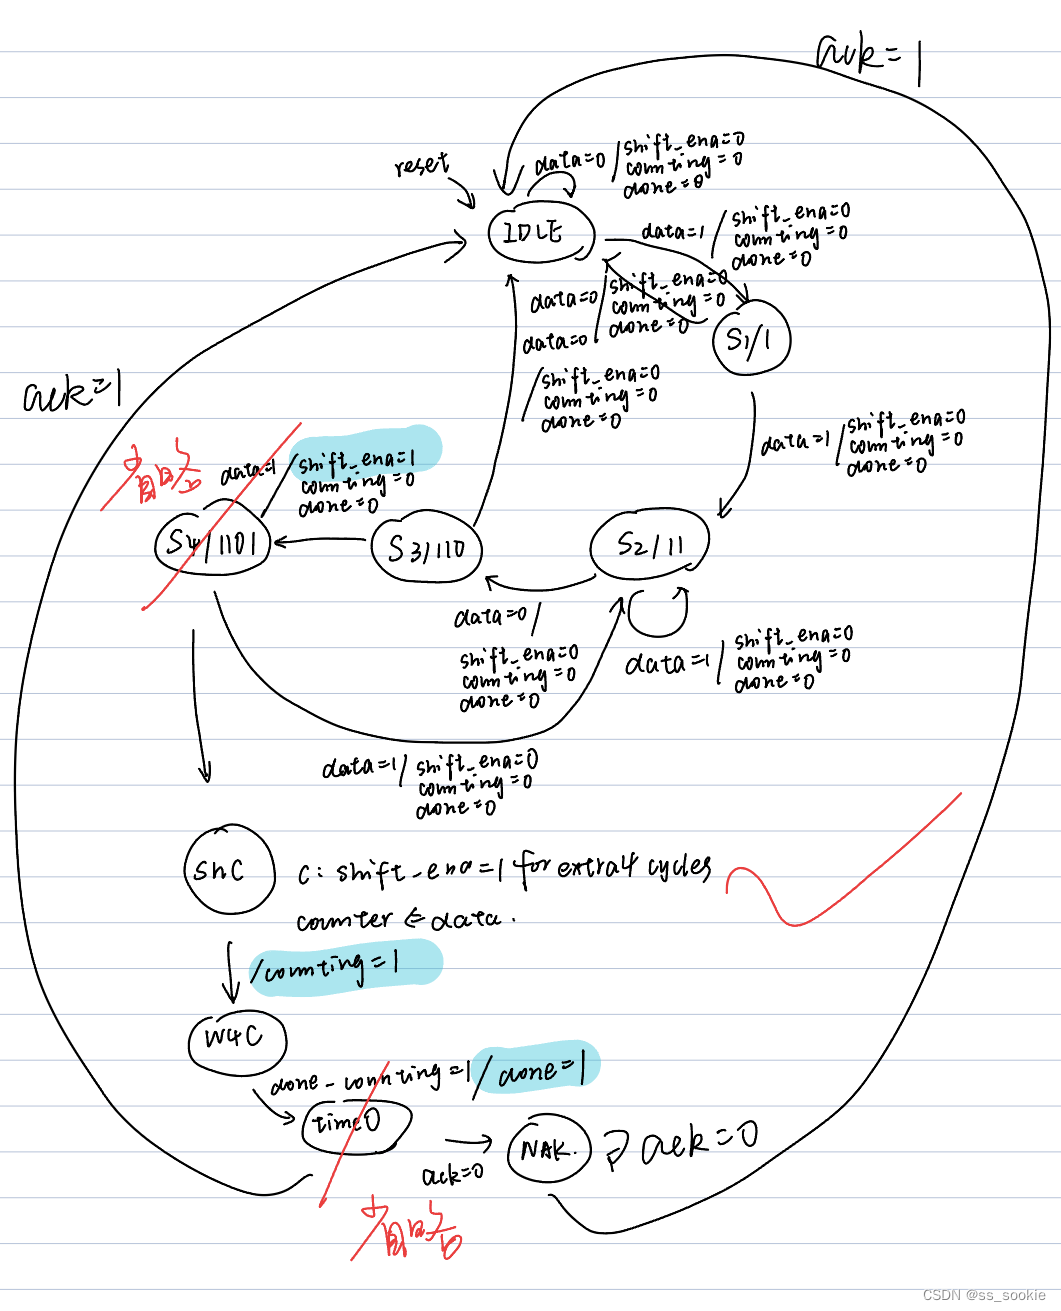 ack=1
reset
data=0/shift_ena=0
counting=0
done=0
IDLE
data=1/shift_ena=0
counting=0
done=0
data=0/shift_ena=0
counting=0
done=0
data=0
/shift_ena=0
counting=0
done=0
S1/1
ack=1
data=1/shift_ena=0
counting=0
done=0
省略
data=1/shift_ena=1
counting=0
done=0
S4/1101
S3/110
S2/11
data=0/
shift_ena=0
counting=0
done=0
data=1/shift_ena=0
counting=0
done=0
data=1/shift_ena=0
counting=0
done=0
ShC
C: shift_ena=1 for extra 4 cycles
counter ⇐ data.
/counting=1
W4C
done-counting=1/done=1
time0
ack=0
NAK.
ack=0
省略
CSDN @ss_sookie